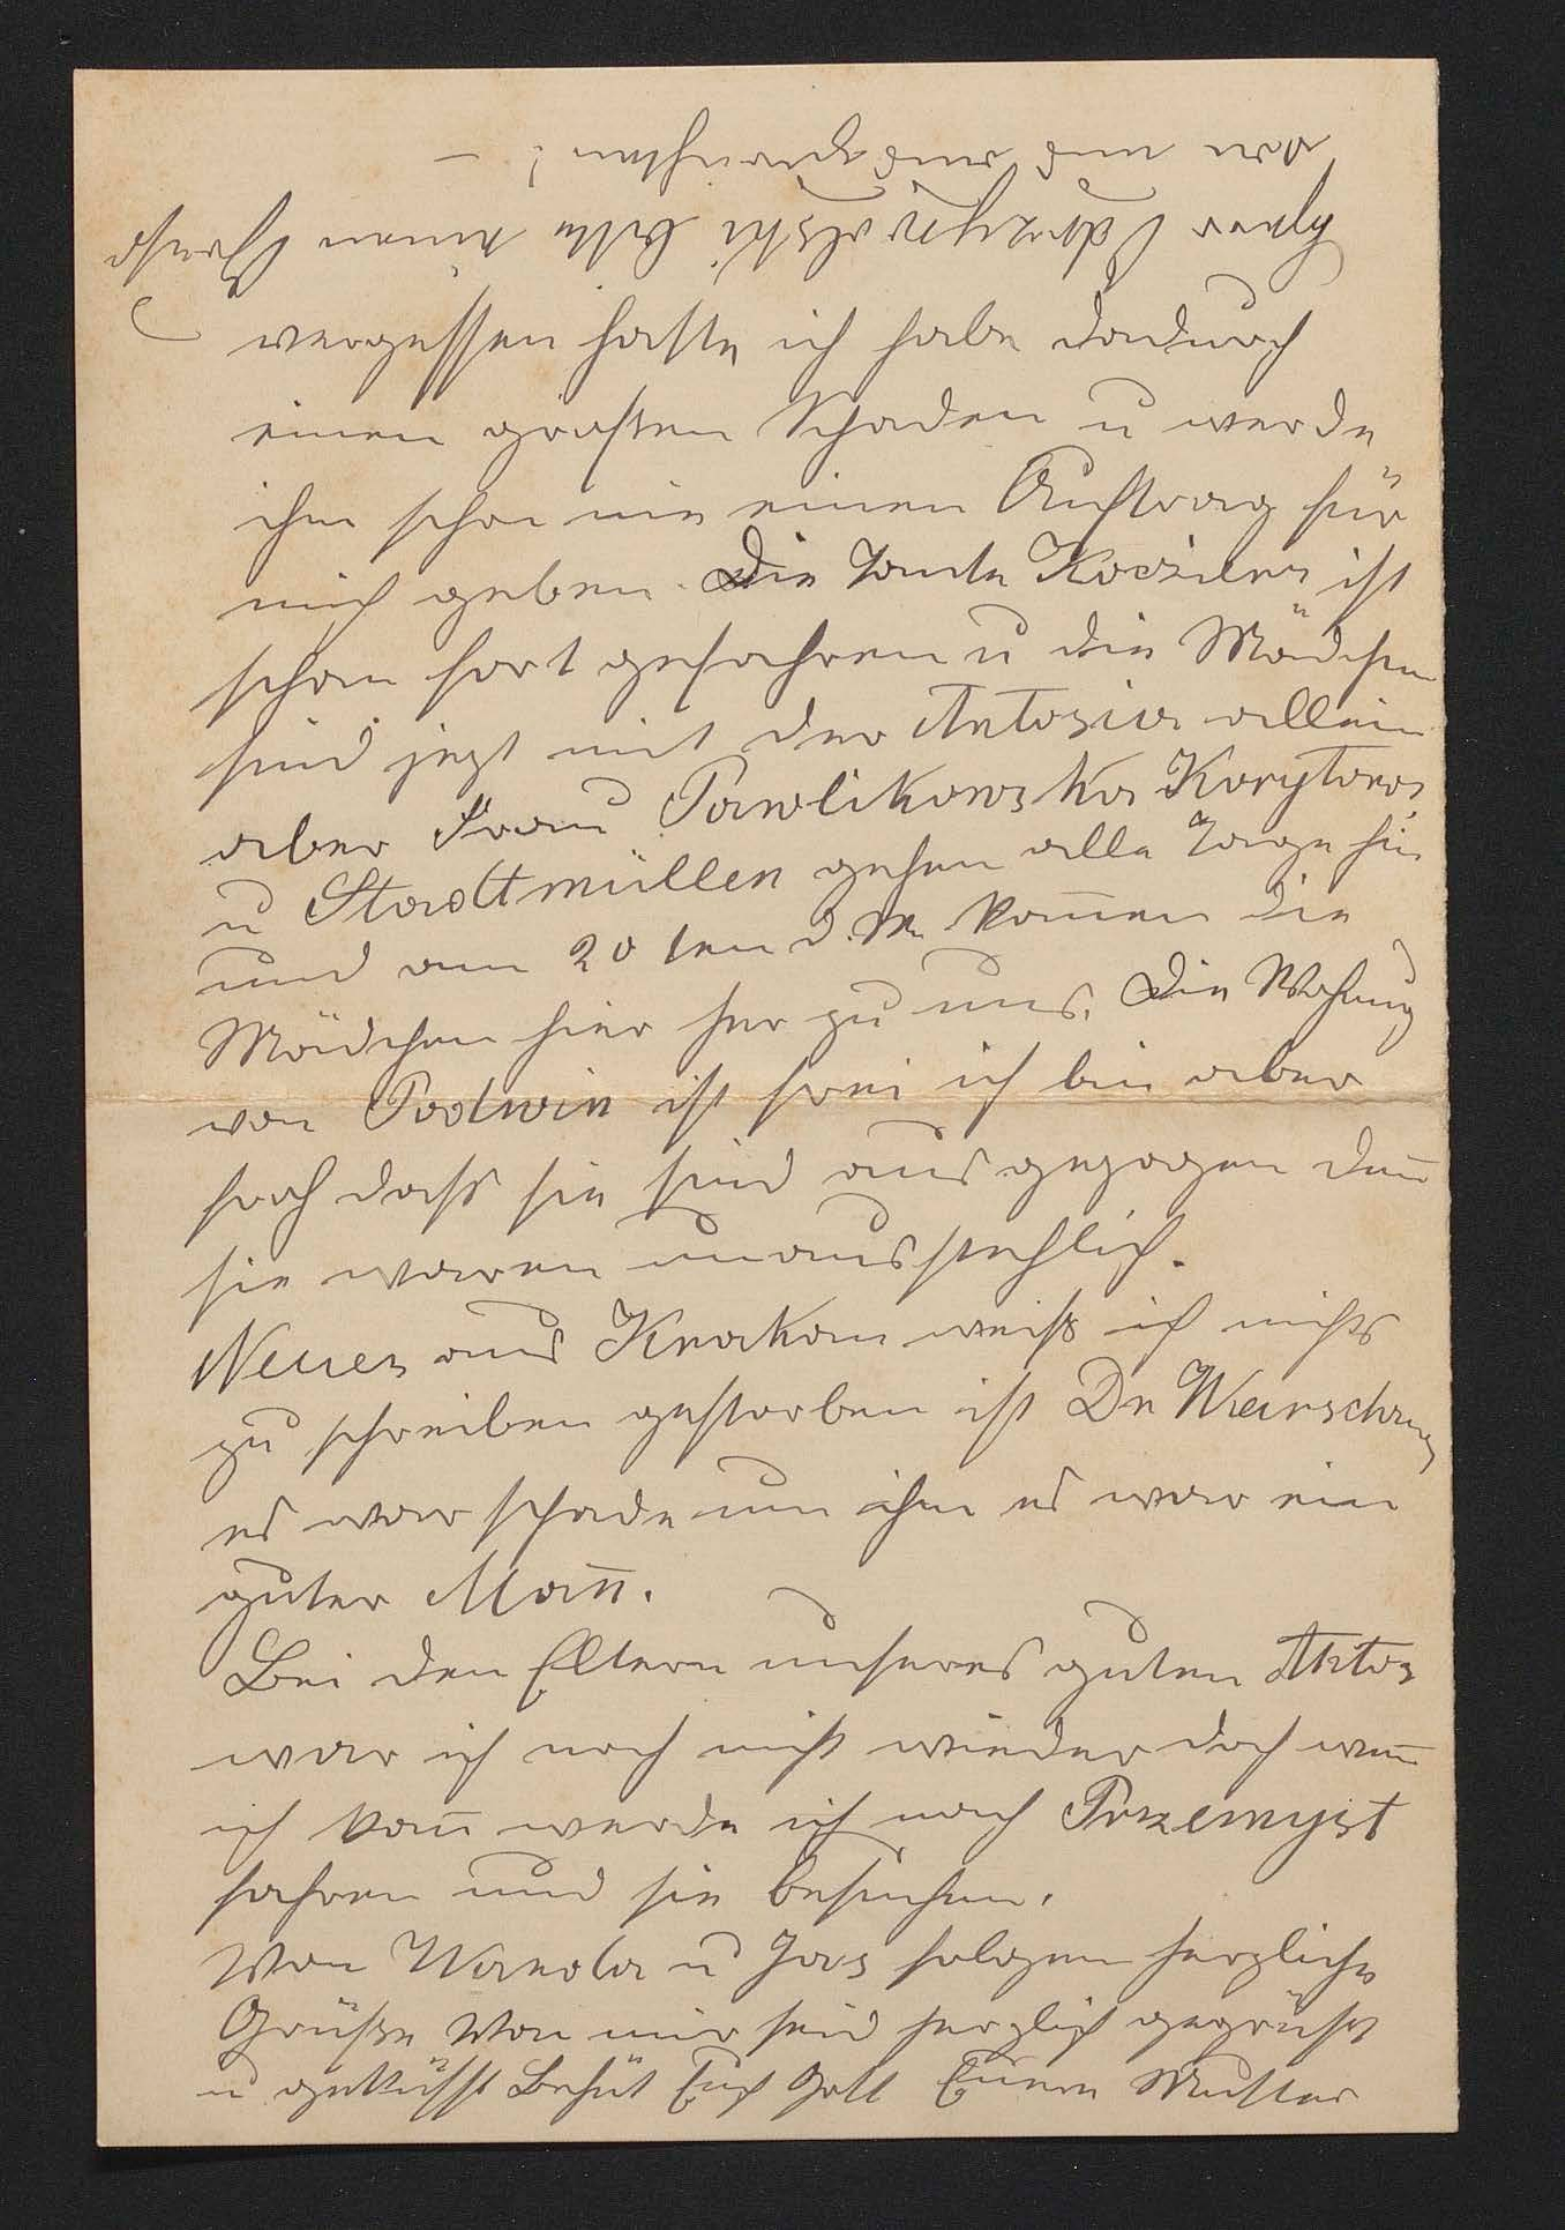 vergessen hatte ich habe dadurch
einen großen Schaden u werde
ihm schon nie einen Auftrag für
mich geben. Die Tante ist
schon fort gefahren u die Mädchen
sind jezt mit der Antosia allein
aber Frau Pawlikowska Korytowa
u Stadtmüllen gehen alle Tage hin
und am 20 ten d. M. kom̄en die
Mädchen hier her zu uns. Die Wohnung
von Podwin ist frei ich bin aber
froh daß sie sind ausgezogen den̄
sie waren unausstehlich.
Neues aus Krakau weiß ich nichts
zu schreiben gestorben ist Dr Warschauer
es war schade um ihm es war ein
guter Man̄.
Bei den Eltern unseres guten Antos
war ich noch nicht wieder doch wen̄
ich kan̄ werde ich nach Przemyśl
fahren und sie besuchen.
Von Wanda u Jas folgen herzliche
Grüße Von mir seid herzlich gegrüßt
u geküsst Behüt Euch Gott Euere Mutter
Herr bitte einen Gruß
von uns auszurichten! –